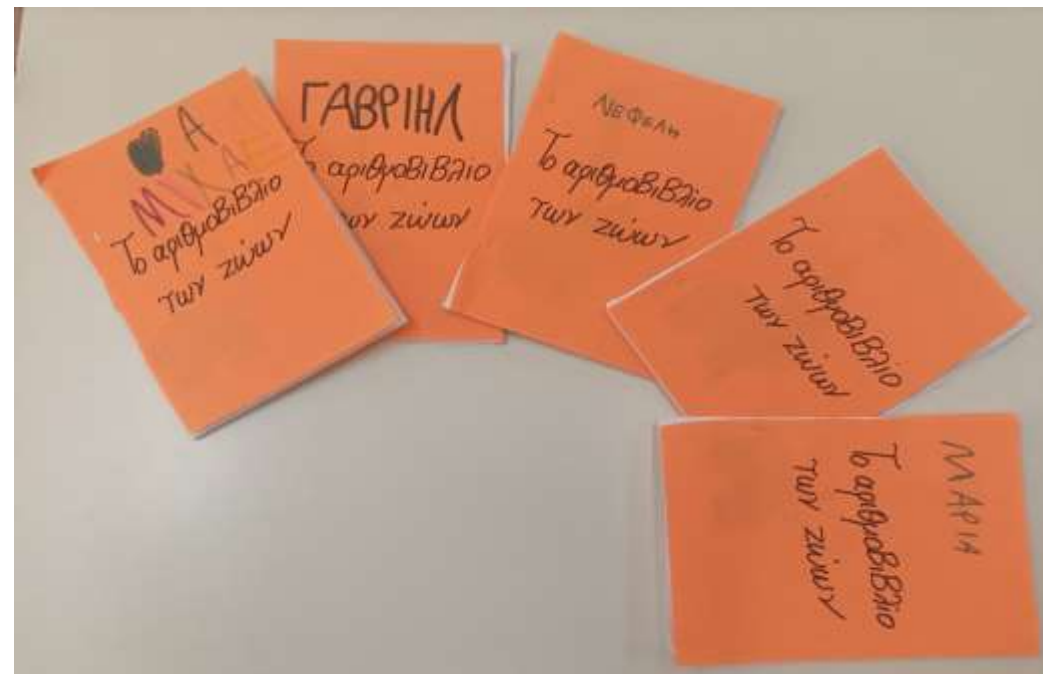 Α
ΜΙΧΑΕ
Το αριθμοβιβλιο
των ζώων
ΓΑΒΡΙΗΛ
Το αριθμοβιβλιο
των ζώων
ΝΕΦΕΛΗ
Το αριθμοβιβλιο
των ζώων
Το αριθμοβιβλιο
των ζώων
ΜΑΡΙΑ
Το αριθμοβιβλιο
των ζώων